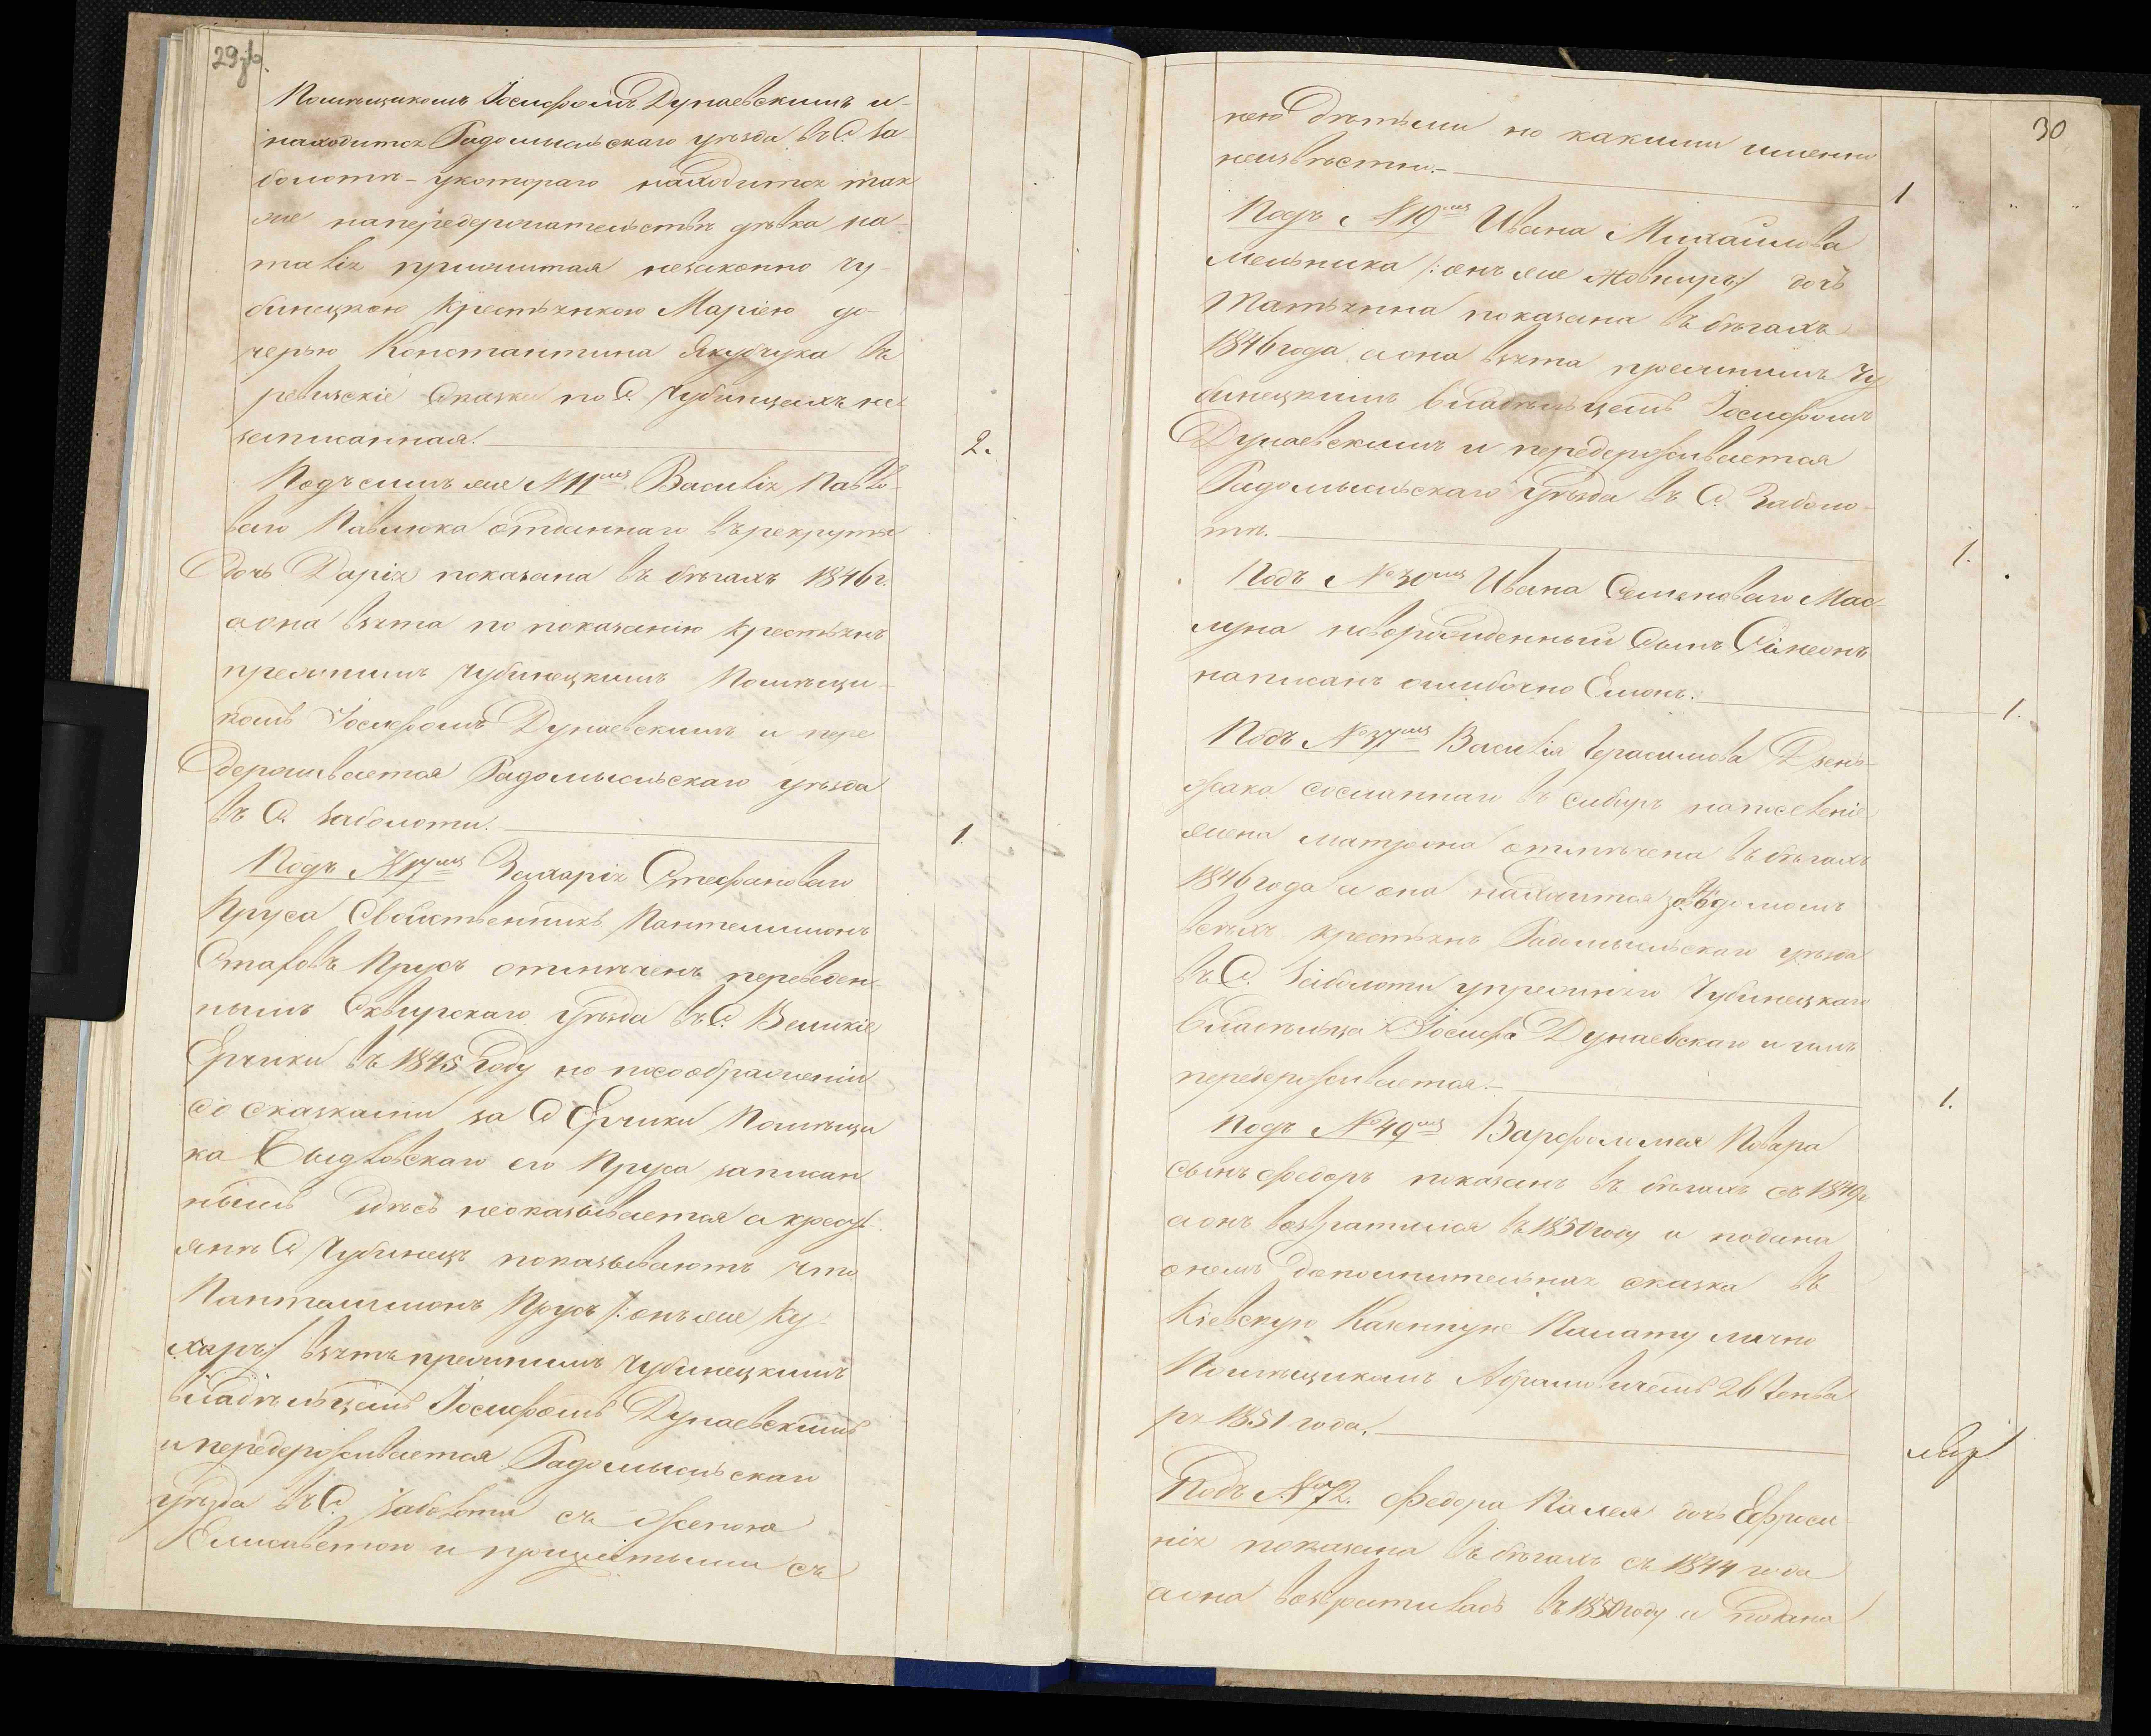 29 об.
Помѣщикомъ Іосифомъ Дунаевскимъ и
находится Радомысльскаго уѣзда въ С. За-
болоти – укотораго находится так
же напередержательствѣ дѣвка На-
талія прижитая незаконно Чу-
бинецкою крестьянкою Маріею до-
черью Константина Якубчука въ
ревизскіе Сказки по С. Чубинцахъ не
записанная.
2.
Подъ симъ же №11мъ Василія Павло-
ваго Павлюка отданнаго въ рекруты
Дочь Дарія показана въ бѣгахъ 1846 г.
а она взята по показанію крестьянъ
прежнимъ Чубинецкимъ Помѣщи-
комъ Іосифомъ Дунаевскимъ и пере
держивается Радомысльскаго уѣзда
въ С. Заболоти.
1.
Подъ №17мъ Захарія Стефановаго
Пруса Свойственникъ Пантелимонъ
Прусъ отмѣченъ переведен
нымъ Сквирскаго Уѣзда въ С. Великіе
Ерчики въ 1845 Году но по сображеніи
со сказками за С Ерчики Помѣщи
ка его Пруса записан
нымъ здѣсь неоказывается а крест
яне С Чубинецъ показываютъ что
Панталимонъ Прусъ /: онъ же Ку
харъ :/ взятъ прежнимъ Чубинецкимъ
владѣльцемъ Іосифомъ Дунаевскимъ
и передерживается Радомысльскаго
уѣзда въ С. Заболоти съ женою
Елисаветою и прижитыми съ
30
нею дѣтьми но какими именно
неизвѣстно.
1
Подъ №19мъ Ивана Михайлова
Мельника /: онъ же Жовниръ :/ дочь
Татьянна показана въ бѣгахъ
1846 года, а она взята прежнимъ Чу
бинецкимъ владѣльцемъ Іосифомъ
Дунаевскимъ и передерживается
Радомысльскаго Уѣзда въ С. Заболо-
тѣ.
1.
Подъ №30мъ Ивана Семеноваго Мас
луна новорожденный Сынъ Симеонъ
написанъ ошибочно Емонъ.
1.
Подъ №37мъ Василія Герасимова Дзень-
жака сосланнаго въ сибирь на поселеніе
жена Матрона отмѣчена въ бѣгахъ
1846 года а она находится завѣдомомъ
всѣхъ крестьянъ Радомысльскаго уѣзда
въ С. Заболоти упрежняго Чубинецкаго
владѣльца Іосифа Дунаевскаго и имъ
передерживается.
1.
Подъ №49мъ Варфоломея Повара
сынъ Федоръ показанъ въ бѣгахъ съ 1849 г.
а онъ возвратился въ 1850 году и подана
онемъ дополнительная сказка въ
Кіевскую Казенную Палату лично
Помѣщикомъ Абрамовичемъ 26 Генва
ря 1851 года.
Подъ №72. Федора Палея дочь Ефроси
нія показана въ бѣгахъ съ 1844 года
а она возвратилась въ 1850 году и подана